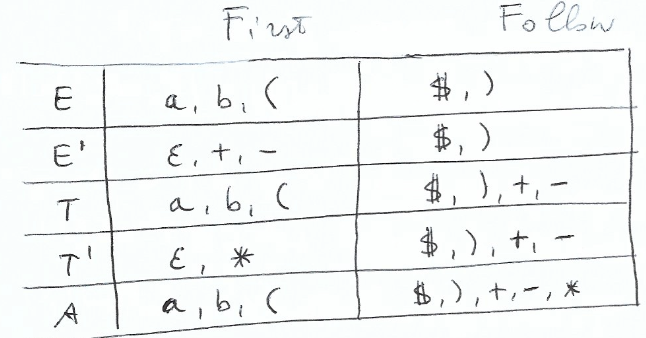 First Follow
E a, b, ( $, )
E' ε, +, - $, )
T a, b, ( $, ), +, -
T' ε, * $, ), +, -
A a, b, ( $, ), +, -, *